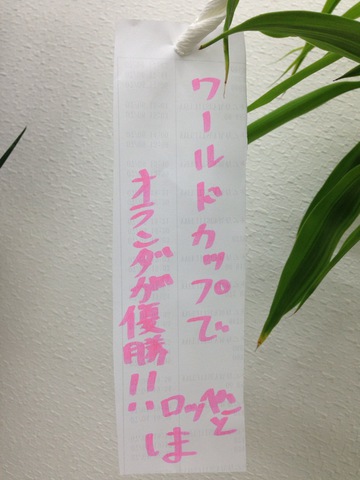 ワールドカップで
オランダが優勝!!
ロッベンと
しま